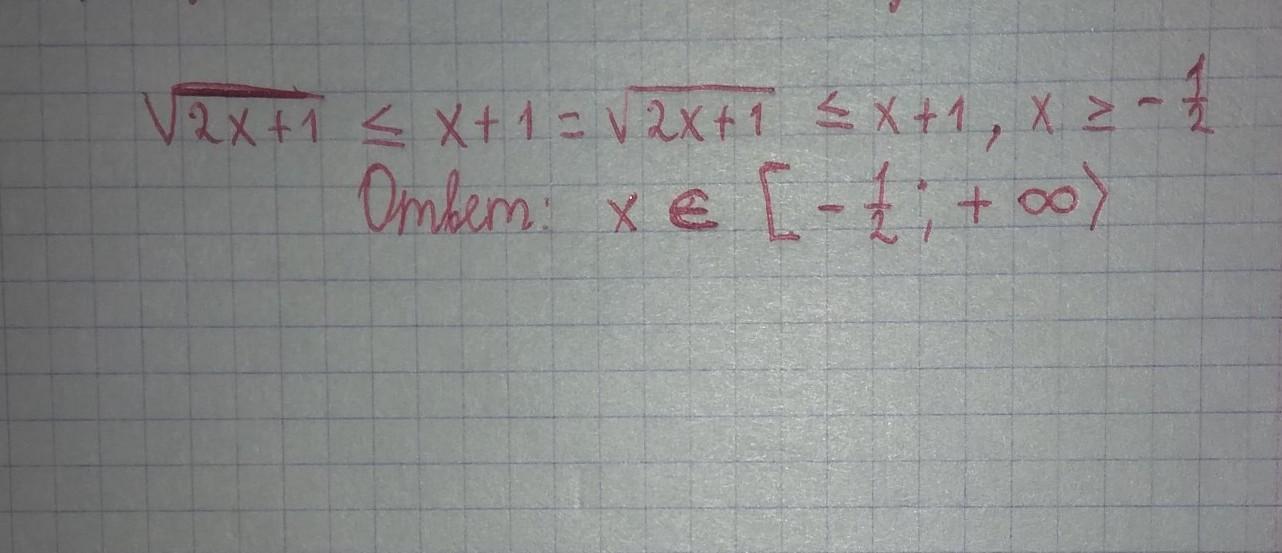 √2x+1 ≤ x+1 = √2x+1 ≤ x+1, x ≥ -1/2
Ответ: x ∈ [-1/2; + ∞)